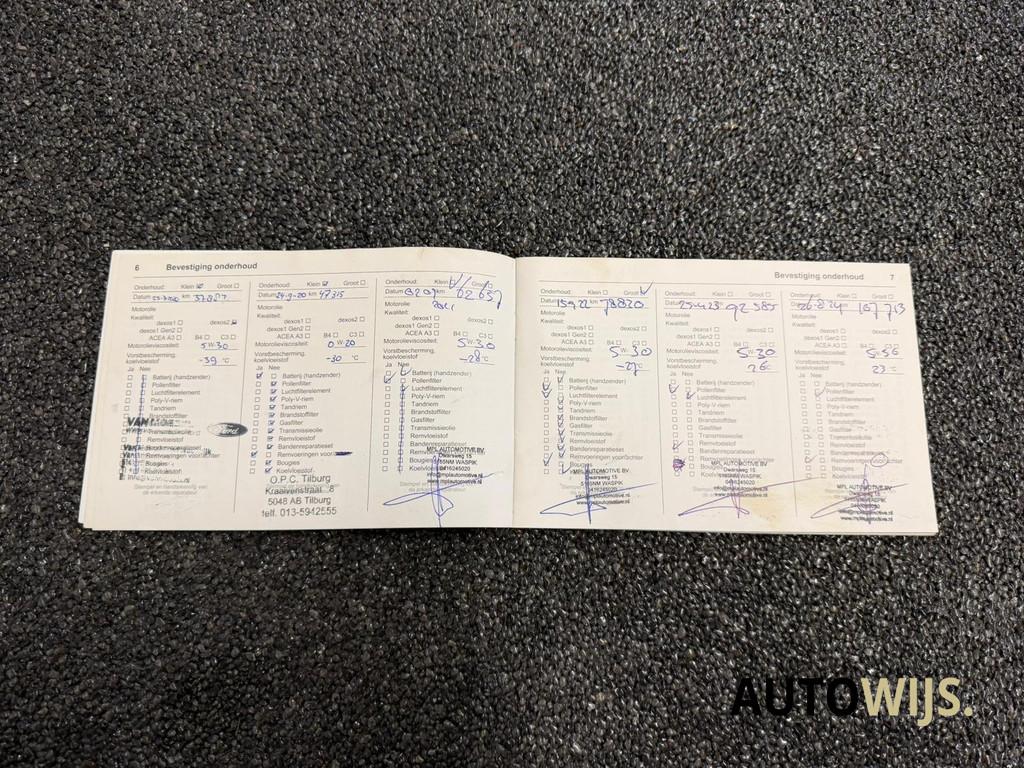 6 Bevestiging onderhoud
Onderhoud: Klein Groot
Datum km
Motorolie
Kwaliteit:
dexos1 dexos2
dexos1 Gen2
ACEA A3 B4 C3
Motorolieviscositeit:
5W30
Vorstbescherming,
koelvloeistof
-39 °C
Ja Nee
Batterij (handzender)
Pollenfilter
Luchtfilterelement
Poly-V-riem
Tandriem
Brandstoffilter
Gasfilter
Transmissieolie
Remvloeistof
Bandenreparatieset
Bougies
Ford
Onderhoud: Klein Groot
Datum 24-9-20 km 47315
Motorolie
Kwaliteit:
dexos1 dexos2
dexos1 Gen2
ACEA A3 B4 C3
Motorolieviscositeit:
0 W-20
Vorstbescherming,
koelvloeistof
-30 °C
Ja Nee
Batterij (handzender)
Pollenfilter
Luchtfilterelement
Poly-V-riem
Tandriem
Brandstoffilter
Gasfilter
Transmissieolie
Remvloeistof
Bandenreparatieset
Remvoeringen
Bougies
Koelvloeistof
O.P.C. Tilburg
Kraaivenstraat 8
5048 AB Tilburg
telf. 013-5942555
Onderhoud: Klein Groot
Datum 62.657
Motorolie 2021
Kwaliteit:
dexos1 dexos2
dexos1 Gen2
ACEA A3 B4 C3
Motorolieviscositeit:
5W-30
Vorstbescherming,
koelvloeistof
-28 °C
Ja Nee
Batterij (handzender)
Pollenfilter
Luchtfilterelement
Poly-V-riem
Tandriem
Brandstoffilter
Gasfilter
Transmissieolie
Remvloeistof
Bandenreparatieset
Remvoeringen
Bougies
MPL AUTOMOTIVE BV.
Dwarsweg 15
5165NM WASPIK
0416245020
info@mplautomotive.nl
www.mplautomotive.nl
Bevestiging onderhoud 7
Onderhoud: Klein Groot
Datum 15-9-22 km 78820
Motorolie
Kwaliteit:
dexos1 dexos2
dexos1 Gen2
ACEA A3 B4 C3
Motorolieviscositeit:
5W-30
Vorstbescherming,
koelvloeistof
-27 °C
Ja Nee
Batterij (handzender)
Pollenfilter
Luchtfilterelement
Poly-V-riem
Tandriem
Brandstoffilter
Gasfilter
Transmissieolie
Remvloeistof
Bandenreparatieset
Remvoeringen voor/achter
Bougies
MPL AUTOMOTIVE BV.
Dwarsweg 15
5165NM WASPIK
0416245020
info@mplautomotive.nl
www.mplautomotive.nl
Onderhoud: Klein Groot
Datum 25-4-23 92585
Motorolie
Kwaliteit:
dexos1 dexos2
dexos1 Gen2
ACEA A3 B4 C3
Motorolieviscositeit:
5W-30
Vorstbescherming,
koelvloeistof
26 °C
Ja Nee
Batterij (handzender)
Pollenfilter
Luchtfilterelement
Poly-V-riem
Tandriem
Brandstoffilter
Gasfilter
Transmissieolie
Remvloeistof
Bandenreparatieset
MPL AUTOMOTIVE BV
Dwarsweg 15
5165NM WASPIK
0416245020
info@mplautomotive.nl
www.mplautomotive.nl
Onderhoud: Klein Groot
Datum 107713
Motorolie
Kwaliteit:
dexos1 dexos2
dexos1 Gen2
ACEA A3 B4 C3
Motorolieviscositeit:
Vorstbescherming,
koelvloeistof
27 °C
Ja Nee
Batterij (handzender)
Pollenfilter
Luchtfilterelement
Poly-V-riem
Tandriem
Brandstoffilter
Gasfilter
Transmissieolie
Remvloeistof
Bandenreparatieset
Remvoeringen voor/achter
Bougies
MPL AUTOMOTIVE BV
Dwarsweg 15
5165NM WASPIK
info@mplautomotive.nl
www.mplautomotive.nl
AUTOWIJS.